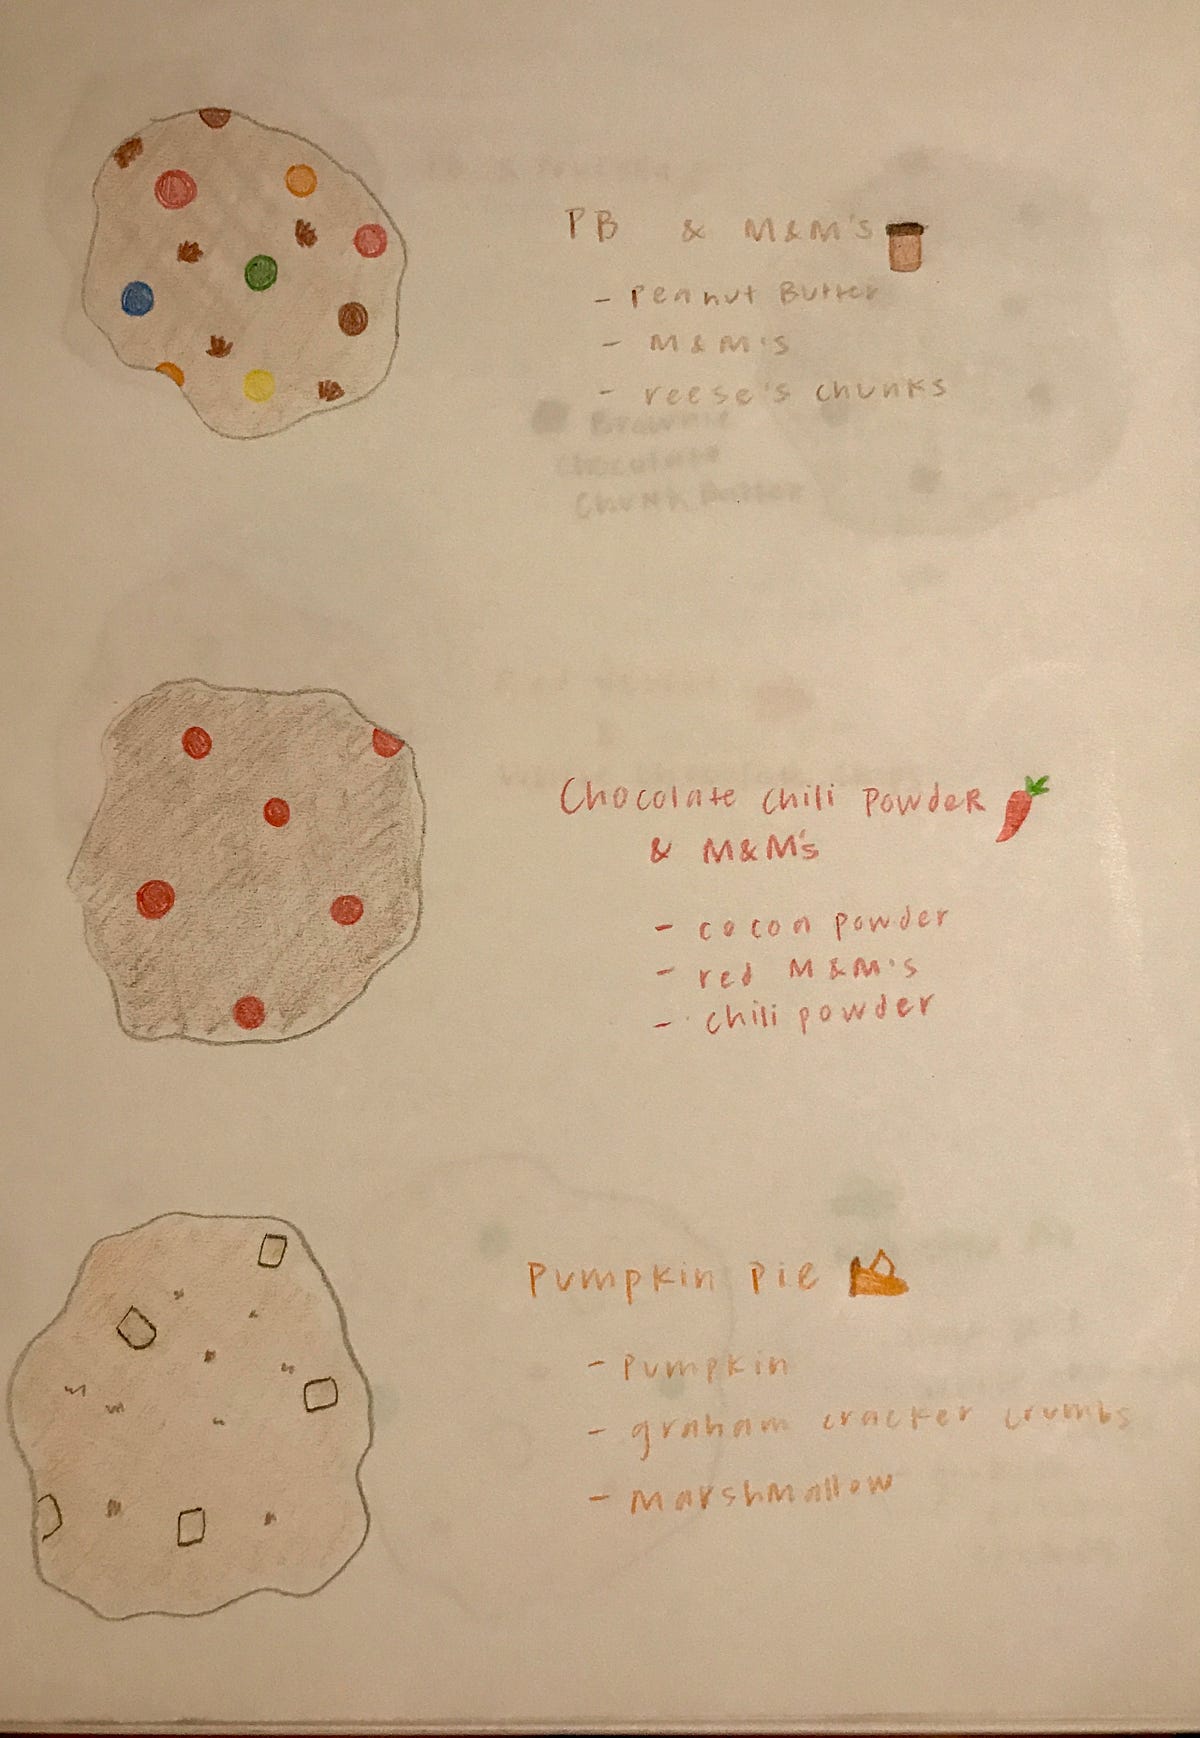 PB & M&M's
- Peanut Butter
- M&M's
- reese's chunks
Brownie
Chocolate
Chunk Butter
Chocolate Chili Powder
& M&M's
- cocoa powder
- red M&M's
- chili powder
Pumpkin Pie
- Pumpkin
- graham cracker crumbs
- Marshmallow